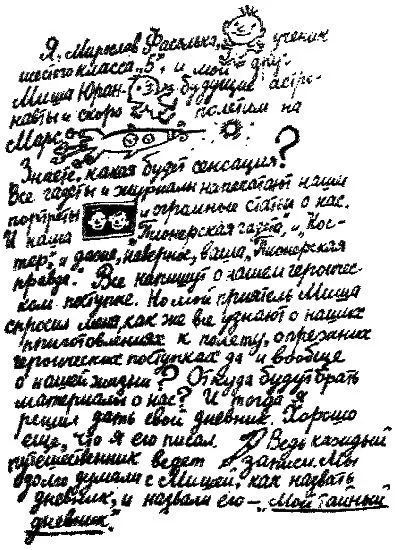 Я, Мирослав Фасолька, ученик
шестого класса „Б“, и мой друг
Миша Юран — будущие астро-
навты и скоро полетим на
Марс.
Знаете, какая будет сенсация?
Все газеты и журналы напечатают наши
портреты и огромные статьи о нас.
И наша „Пионерская газета“, и „Кос-
тер“, и даже, наверное, ваша „Пионерская
правда“. Все напишут о нашем героичес-
ком поступке. Но мой приятель Миша
спросил меня, как же все узнают о наших
приготовлениях к полету, о прежних
героических поступках да и вообще
о нашей жизни? Откуда будут брать
материалы о нас? И тогда я
решил дать свой дневник. Хорошо
еще, что я его писал. Ведь каждый
путешественник ведет записи. Мы
долго думали с Мишей, как назвать
дневник, и назвали его — „Мой тайный
дневник“.